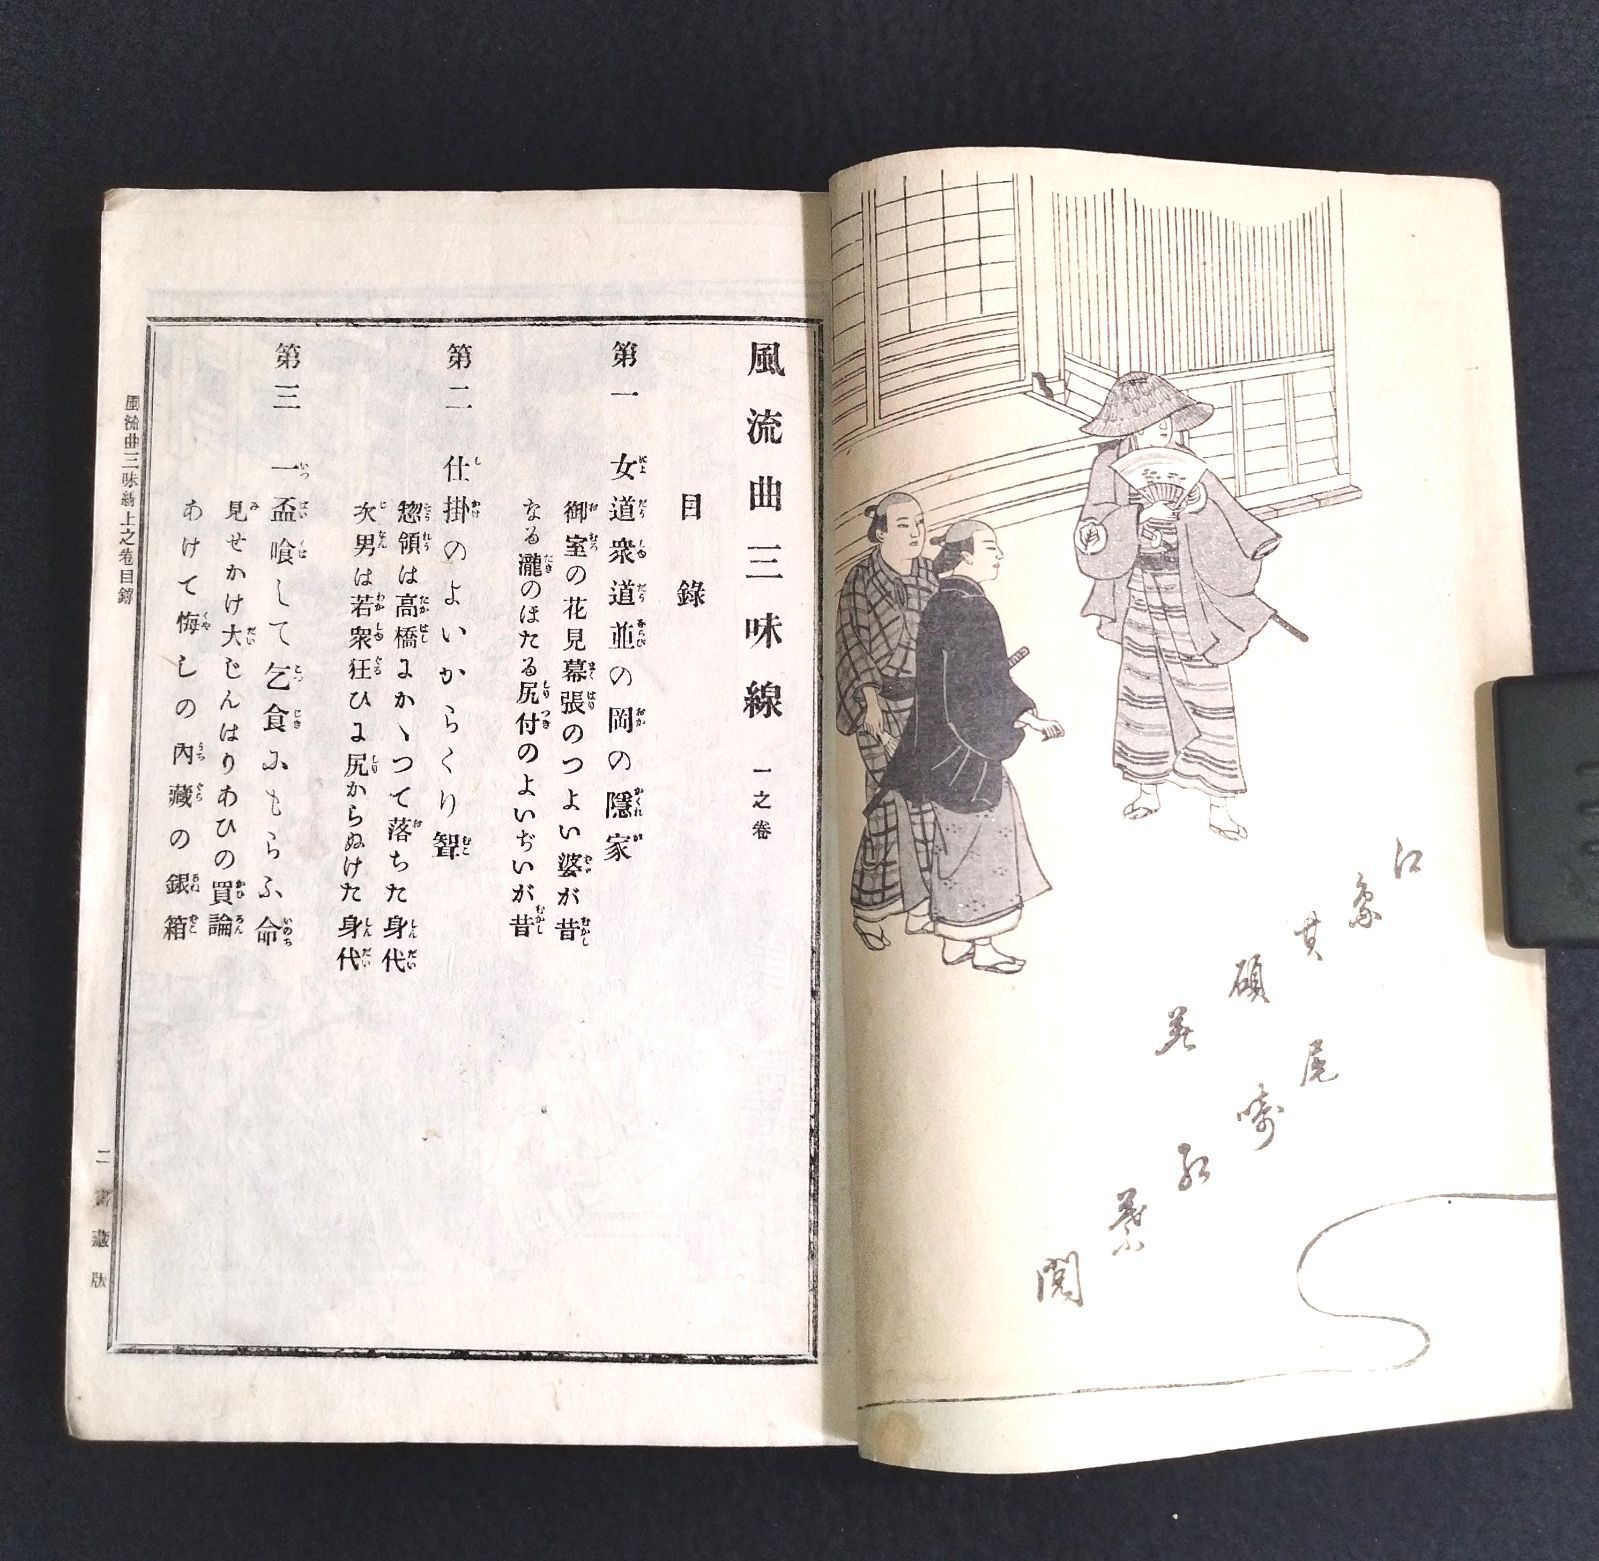 江
其
碩
尾
閲
風流曲三味線 一之卷
目錄
第一 女道衆道並の岡の隱家
御室の花見幕張のつよい婆が昔
なる瀧のほたる尻付のよいぢいが昔
第二 仕掛のよいからくり聟
惣領は高橋にかゝつて落ちた身代
次男は若衆狂ひに尻からぬけた身代
第三 一盃喰して乞食にもらふ命
見せかけ大じんはりあひの買論
あけて悔しの內藏の銀箱
風流曲三味線上之卷目錄
二 書藏版